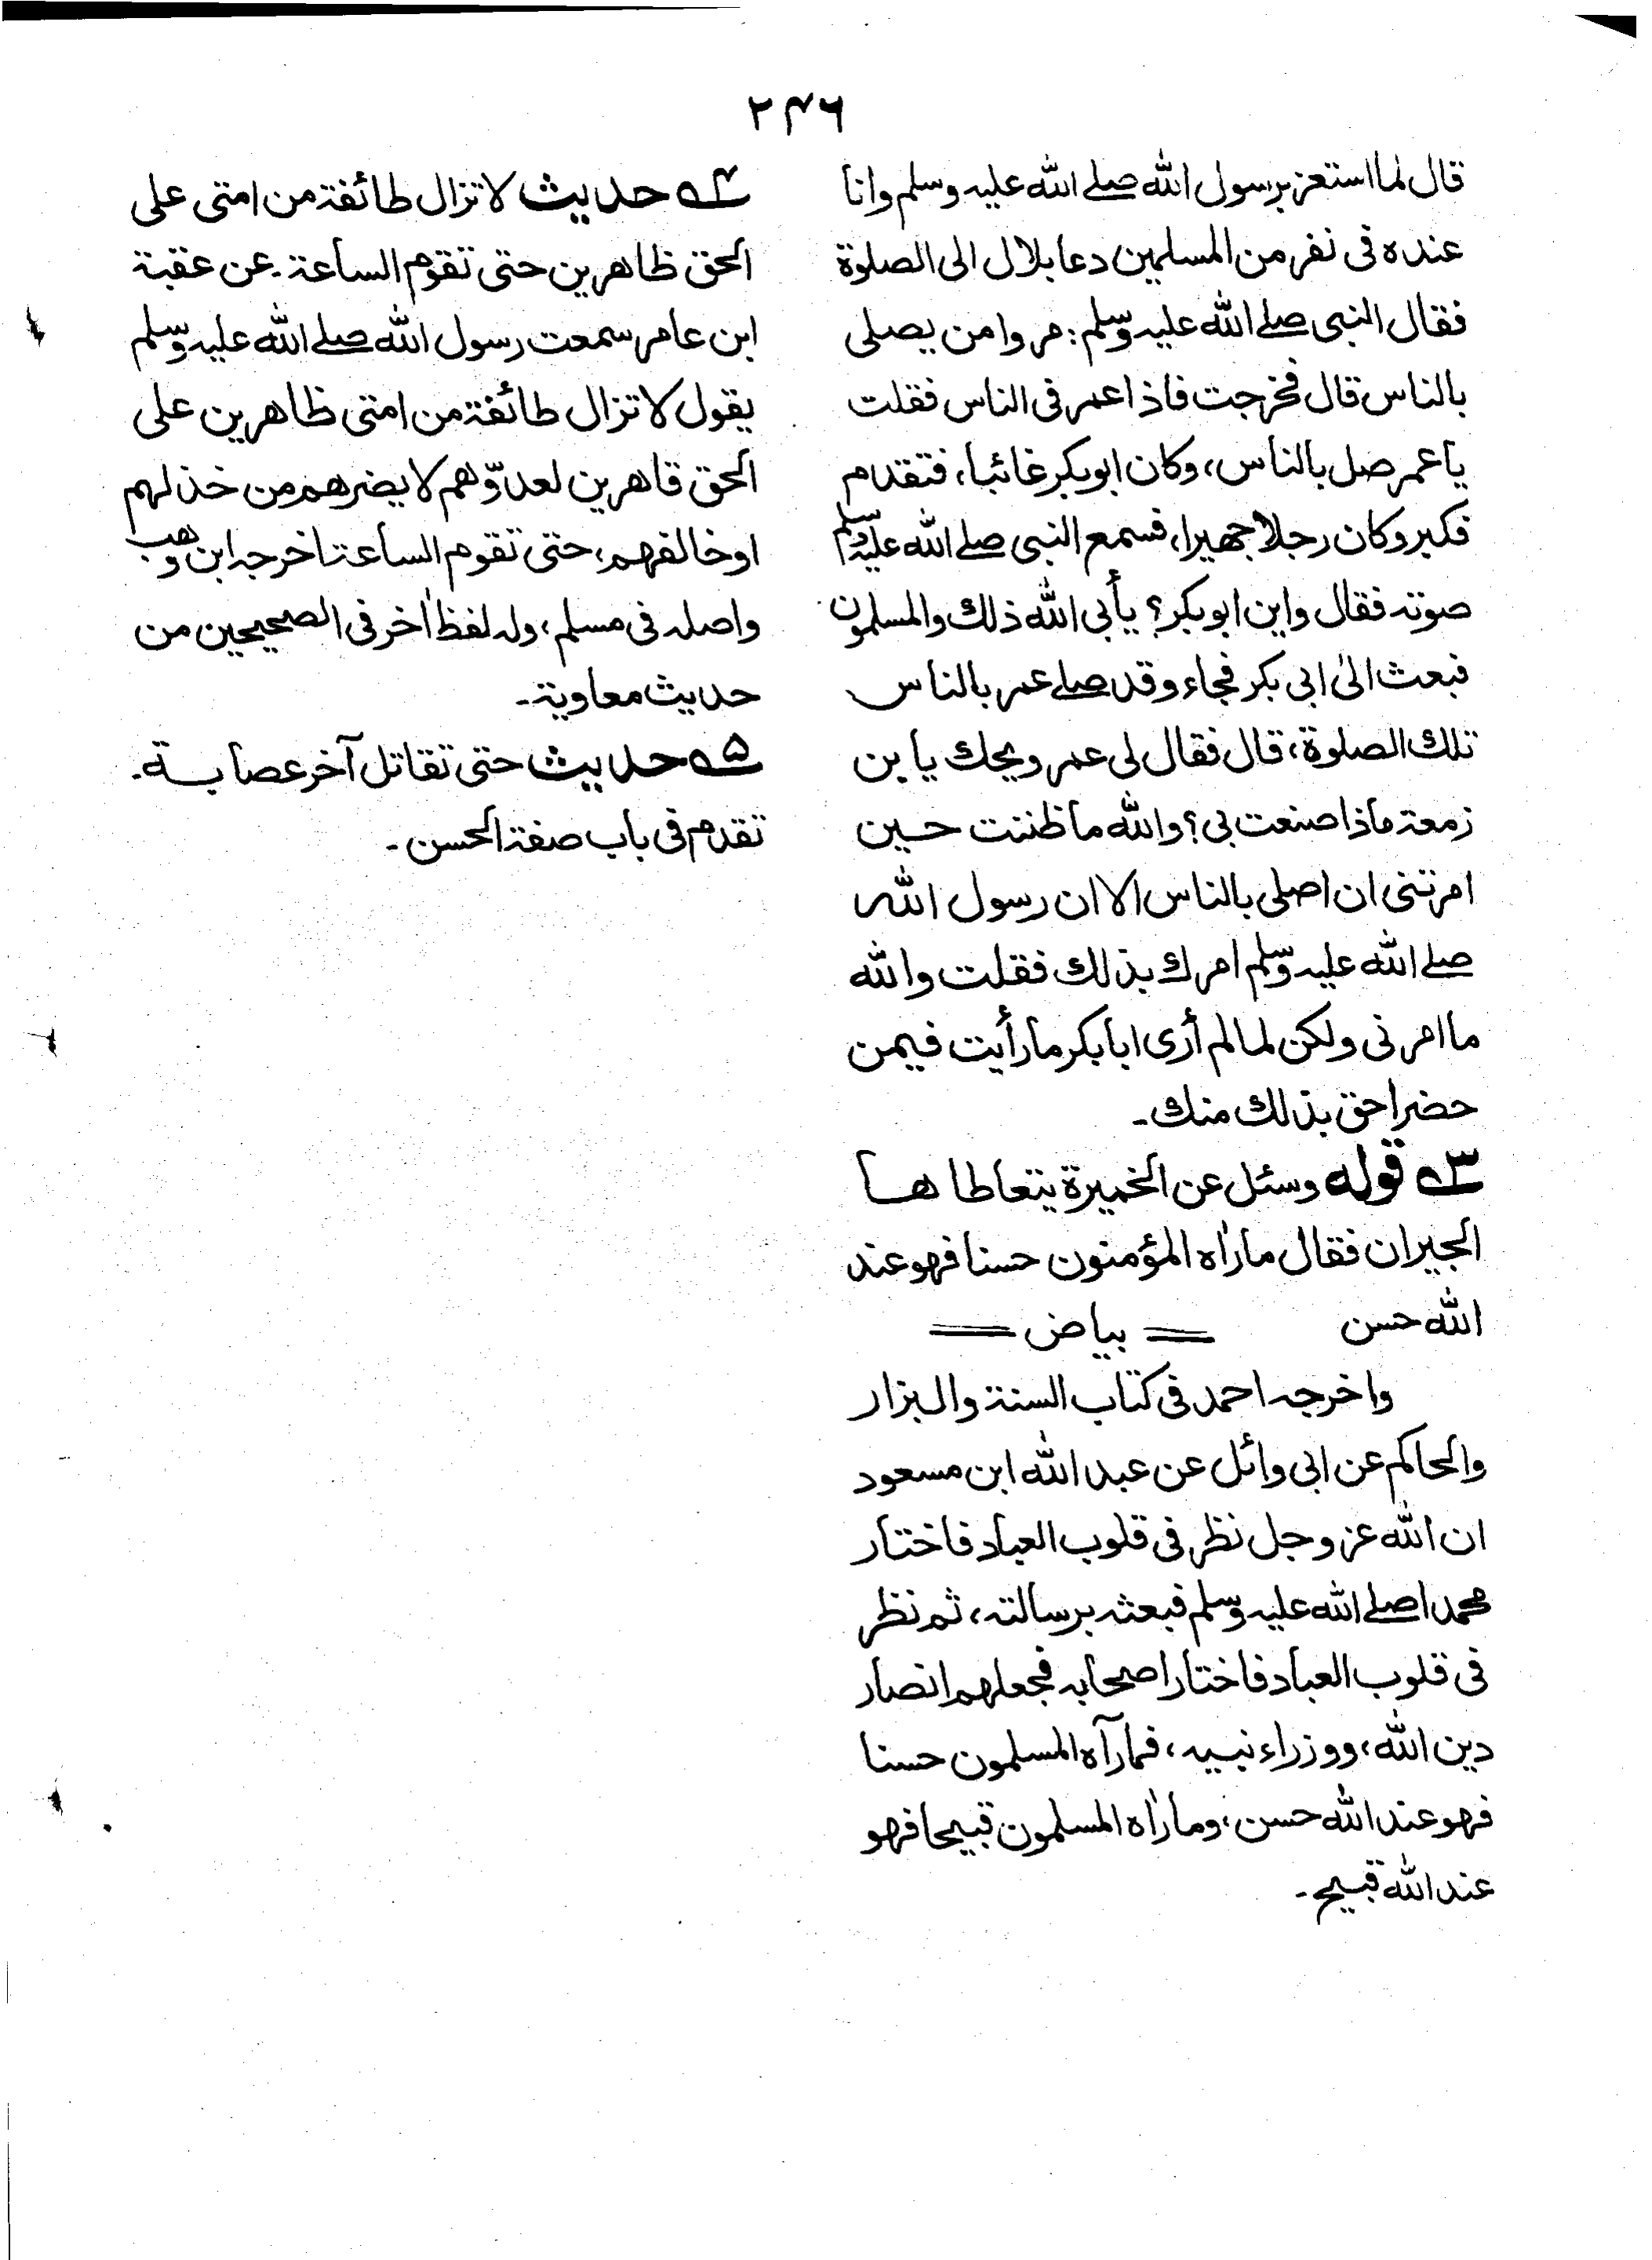 ۲۴۶
قال لما استعز برسول الله صلے الله عليه وسلم وانا
عنده فى نفر من المسلمين دعا بلال الى الصلوة
فقال النبى صلے الله عليه وسلم: مروا من يصلى
بالناس قال فخرجت فاذا عمر فى الناس فقلت
يا عمر صل بالناس، وكان ابوبكر غائبا، فتقدم
فكبر وكان رجلا جهيرا، فسمع النبى صلے الله عليه وسلم
صوته فقال واين ابوبكر؟ يأبى الله ذلك والمسلمون
فبعث الى ابى بكر فجاء وقد صلے عمر بالناس
تلك الصلوة، قال فقال لى عمر ويحك يا بن
زمعة ماذا صنعت بى؟ والله ما ظننت حين
امرتنى ان اصلى بالناس الا ان رسول الله
صلے الله عليه وسلم امرك بذلك فقلت والله
ما امرنى ولكن لما لم أرى ابا بكر ما رأيت فيمن
حضر احق بذلك منك۔
۳ے قوله وسئل عن الخميرة يتعاطاها
الجيران فقال ماراٰه المؤمنون حسنا فهو عند
الله حسن == بياض ==
واخرجه احمد فى كتاب السنة والبزار
والحاكم عن ابى وائل عن عبد الله ابن مسعود
ان الله عز وجل نظر فى قلوب العباد فاختار
محمدا صلے الله عليه وسلم فبعثه برسالته، ثم نظر
فى قلوب العباد فاختار اصحابه فجعلهم انصار
دين الله، ووزراء نبيه، فمارآه المسلمون حسنا
فهو عند الله حسن، وماراٰه المسلمون قبيحا فهو
عند الله قبيح۔
۴ے حديث لا تزال طائفة من امتى على
الحق ظاهرين حتى تقوم الساعة۔ عن عقبة
ابن عامر سمعت رسول الله صلے الله عليه وسلم
يقول لا تزال طائفة من امتى ظاهرين على
الحق قاهرين لعدوّهم لا يضرهم من خذلهم
او خالفهم، حتى تقوم الساعة اخرجه ابن وهب
واصله فى مسلم، وله لفظ اٰخر فى الصحيحين من
حديث معاوية۔
۵ے حديث حتى تقاتل آخر عصابة۔
تقدم فى باب صفة الحسن۔